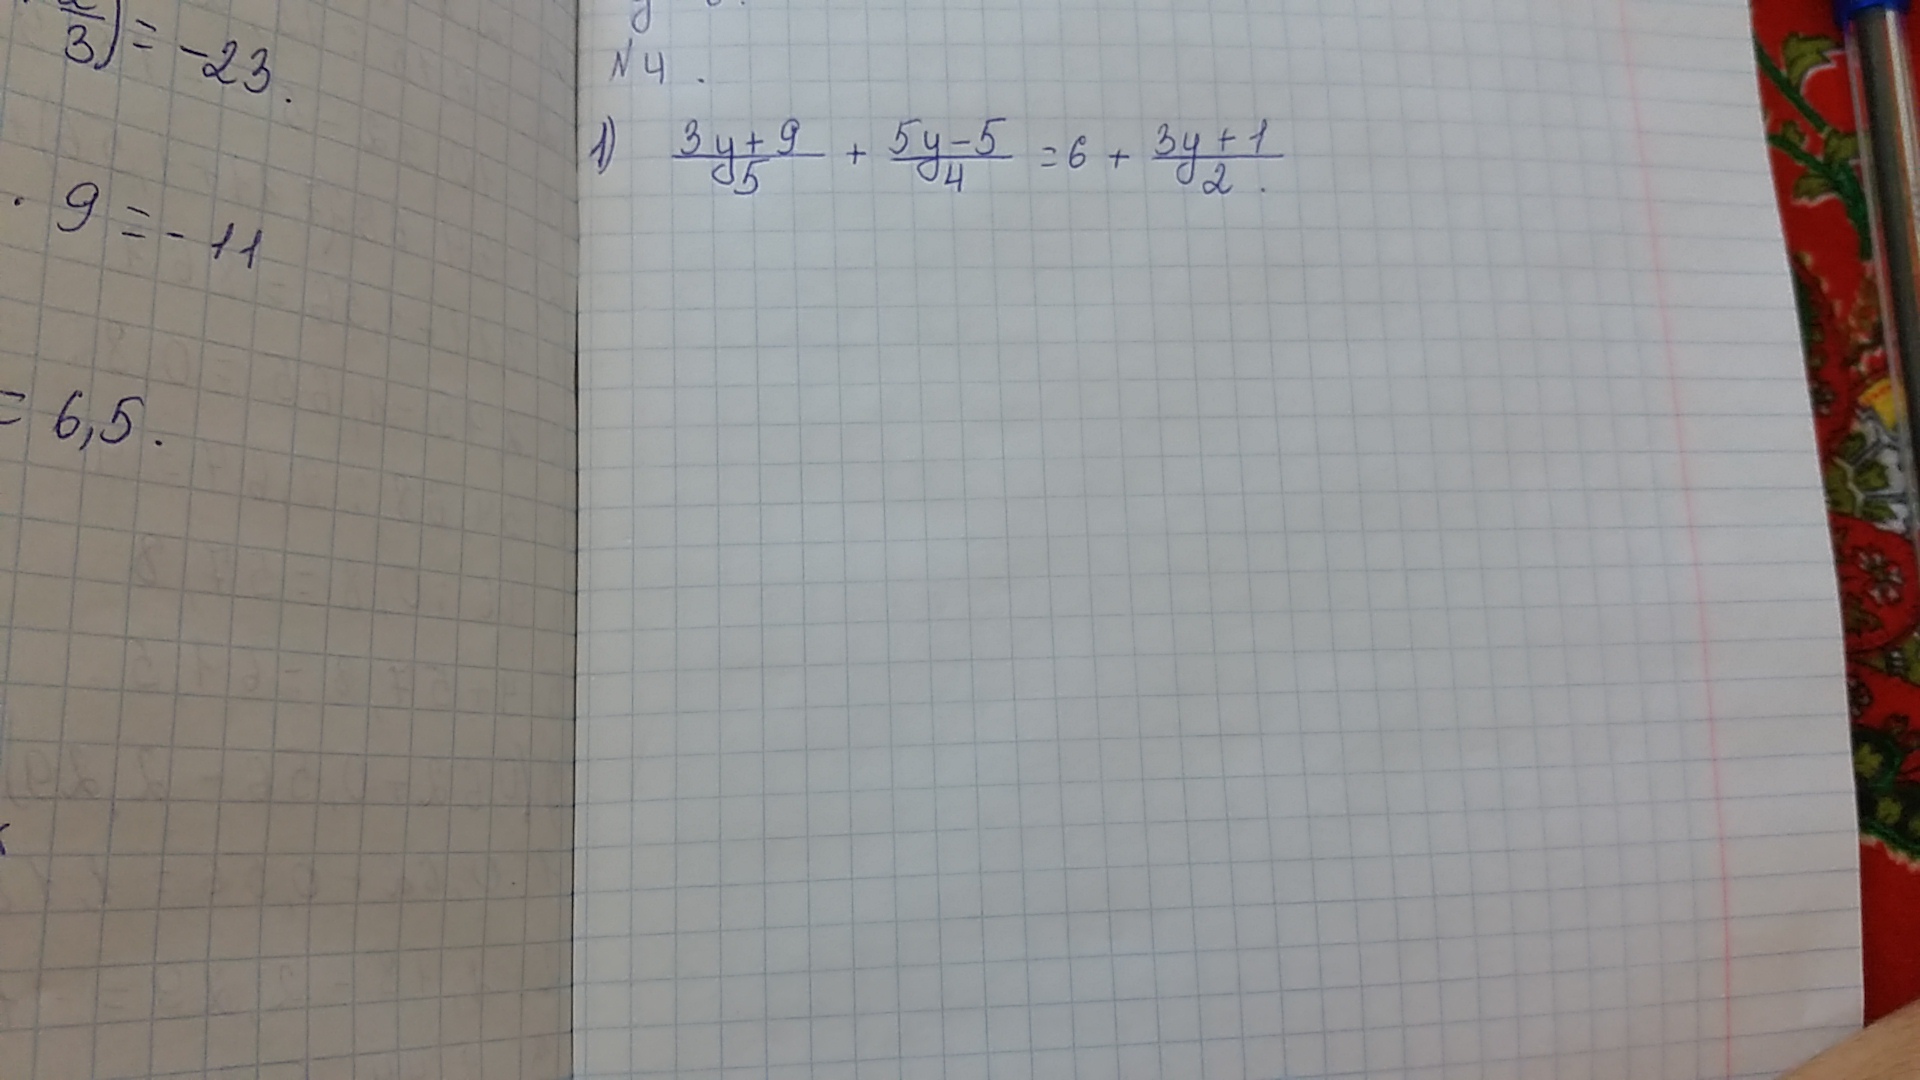 3) = -23.
· 9 = -11
= 6,5.
N4.
1) (3y+9)/5 + (5y-5)/4 = 6 + (3y+1)/2.